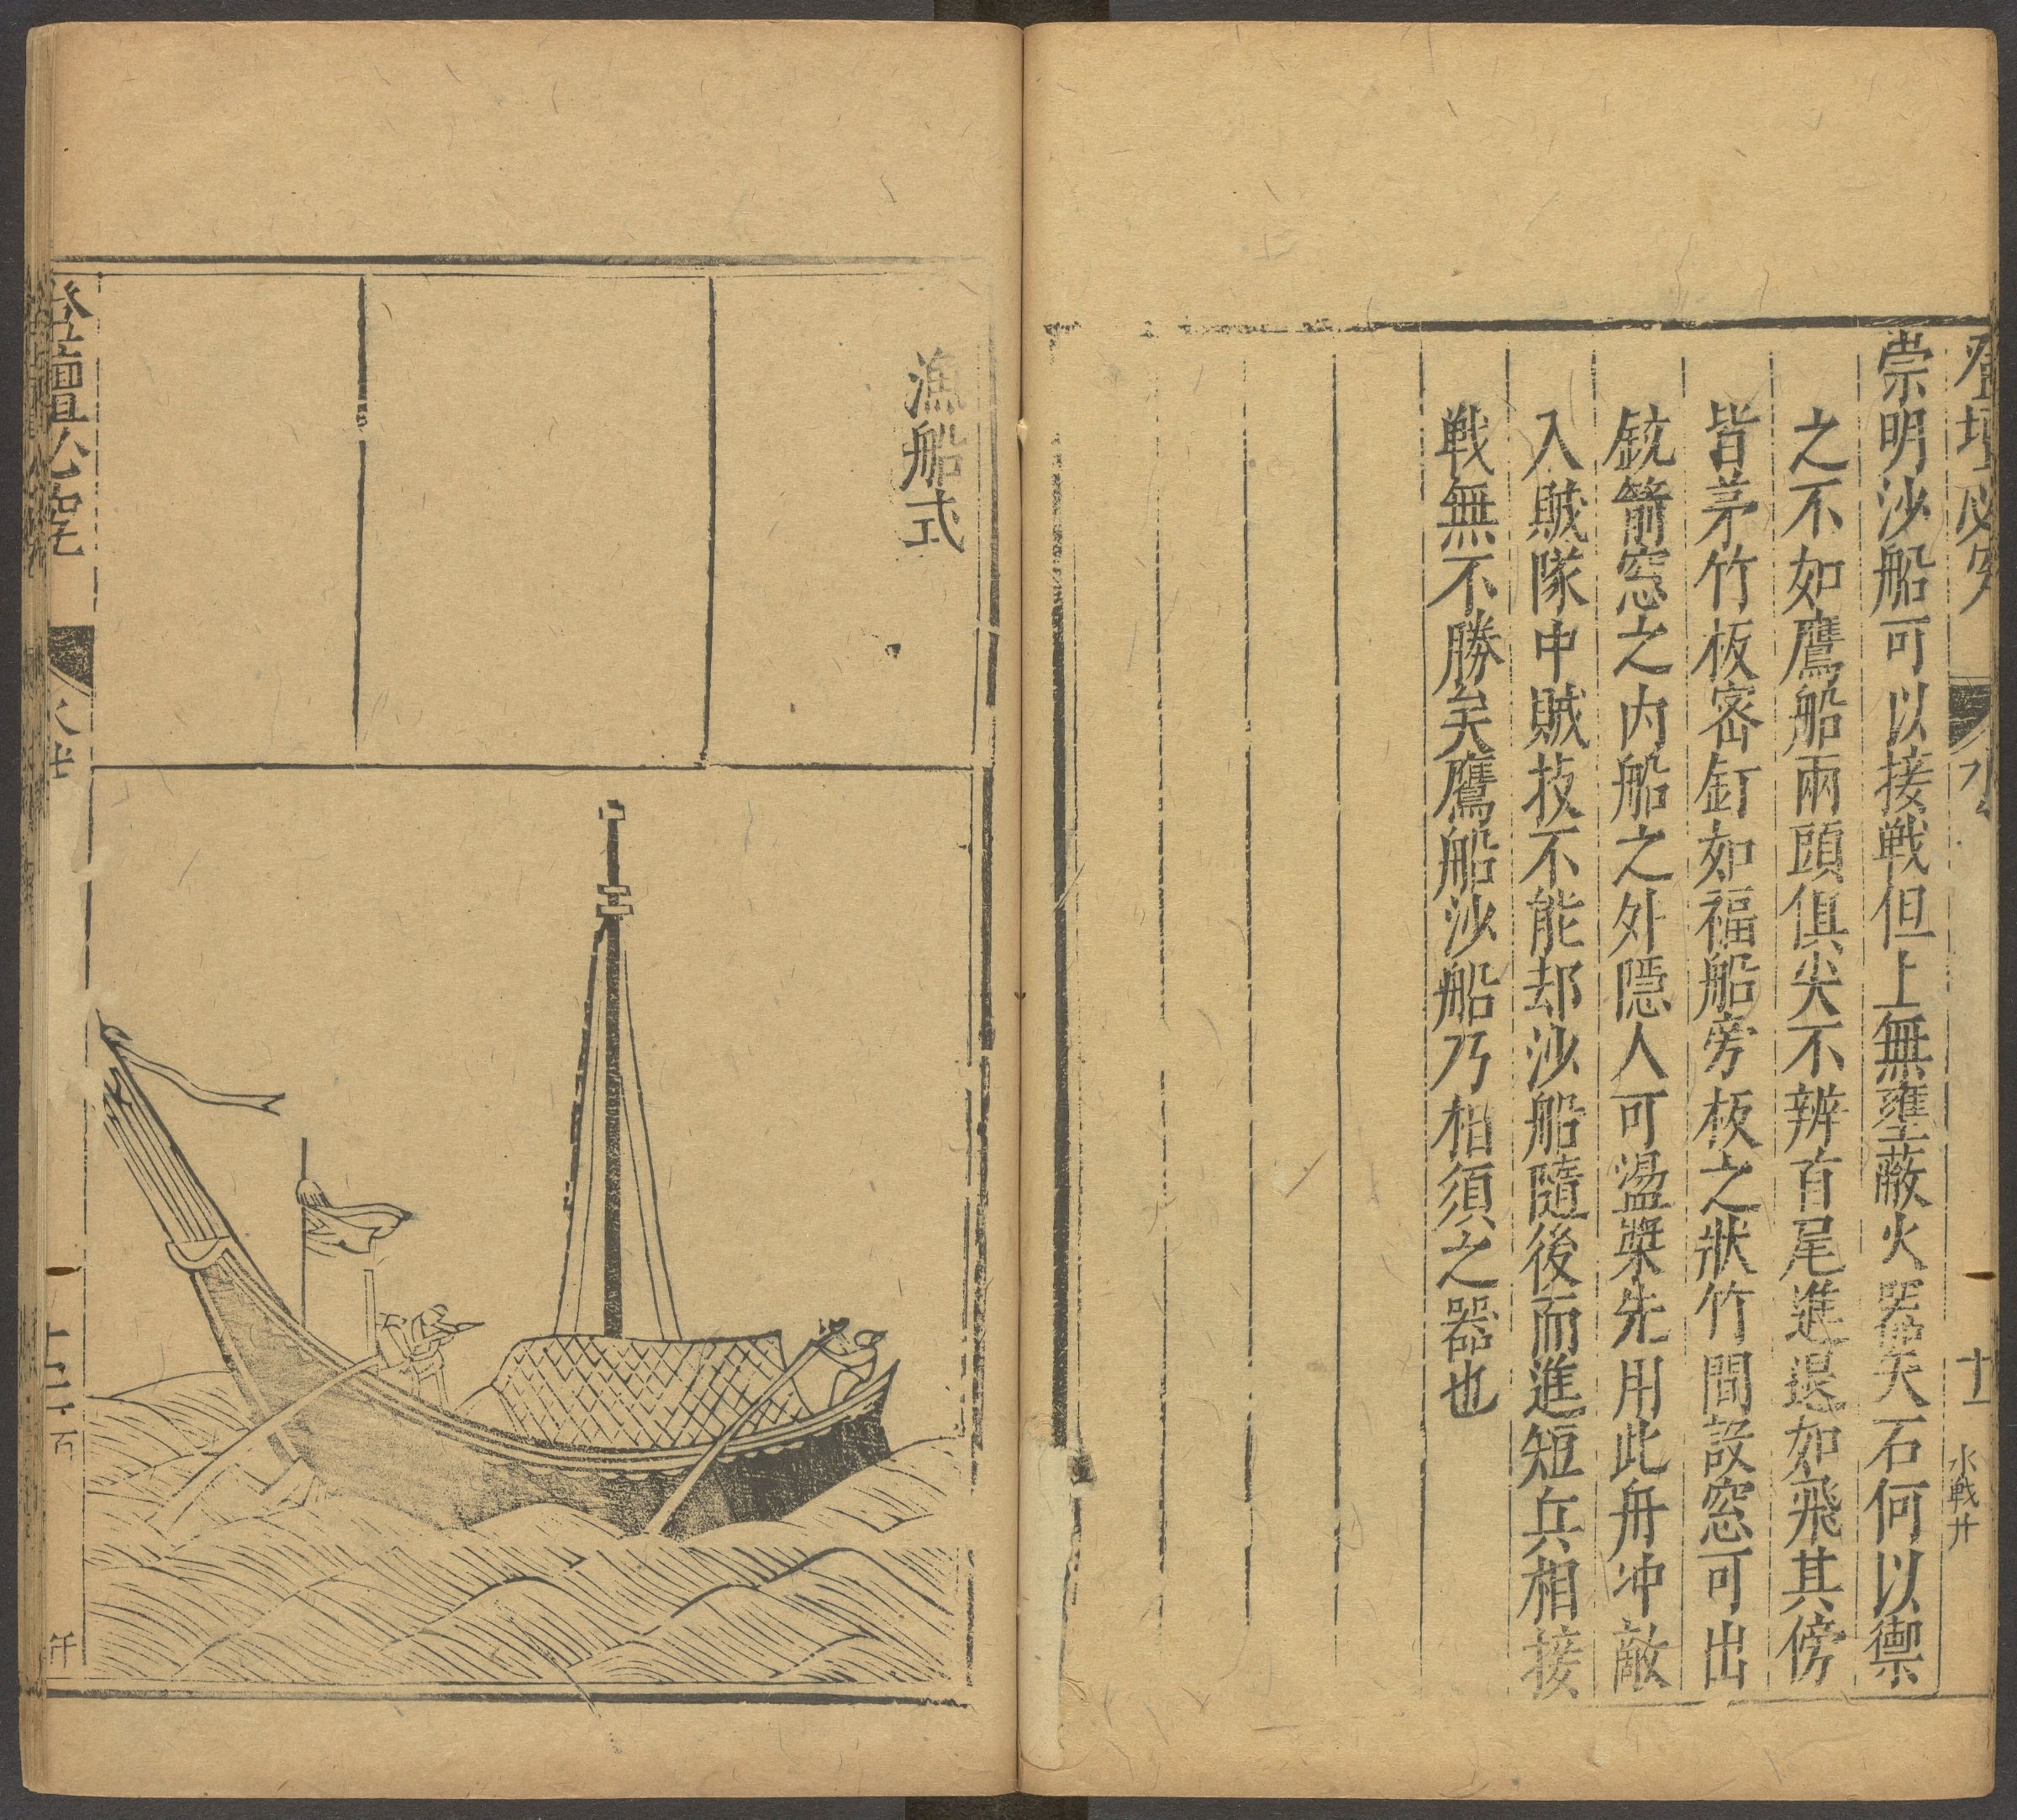 登壇必究
水
十一
水戦廾
崇明沙船可以接戦但上無壅蔽火器矢石何以禦
之不如鷹船兩頭俱尖不辨首尾進退如飛其傍
皆茅竹板密釘如福船旁板之狀竹間設窓可出
銃箭窓之内船之外隱人可盪槳先用此舟冲敵
入賊隊中賊技不能却沙船隨後而進短兵相接
戦無不勝矣鷹船沙船乃相須之器也
漁船式
登壇必究
十二